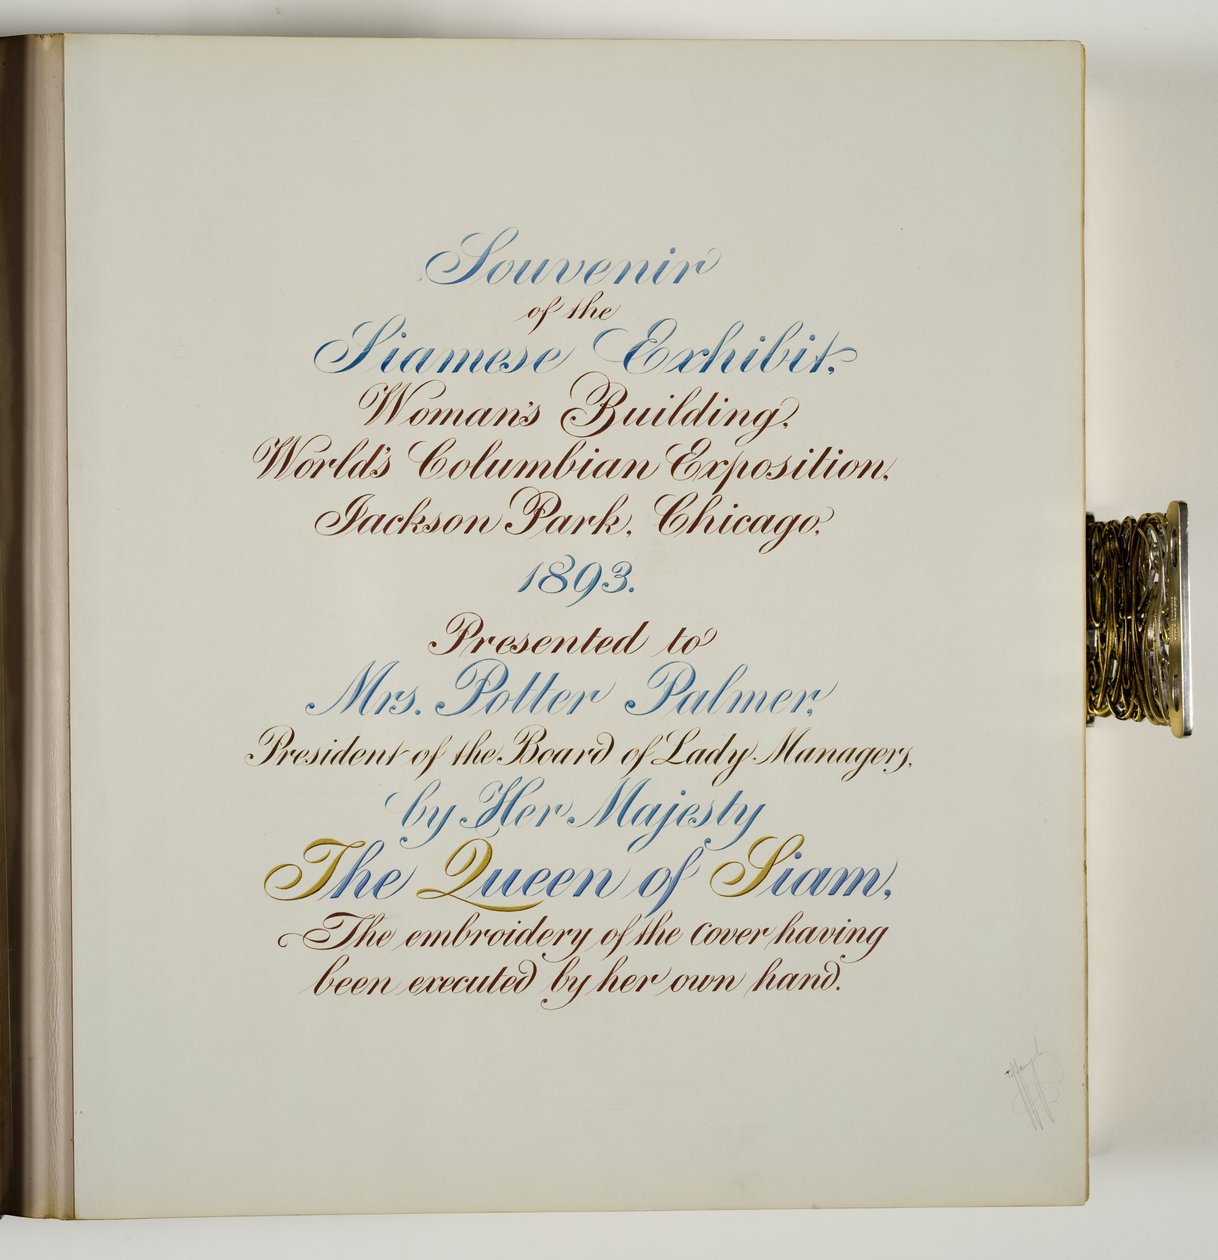 Souvenir
of the
Siamese Exhibit,
Woman's Building,
World's Columbian Exposition,
Jackson Park, Chicago,
1893.
Presented to
Mrs. Potter Palmer,
President of the Board of Lady Managers,
by Her Majesty
The Queen of Siam,
The embroidery of the cover having
been executed by her own hand.